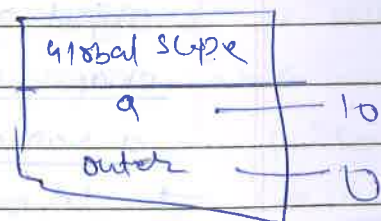 Global Scope
a 10
outer